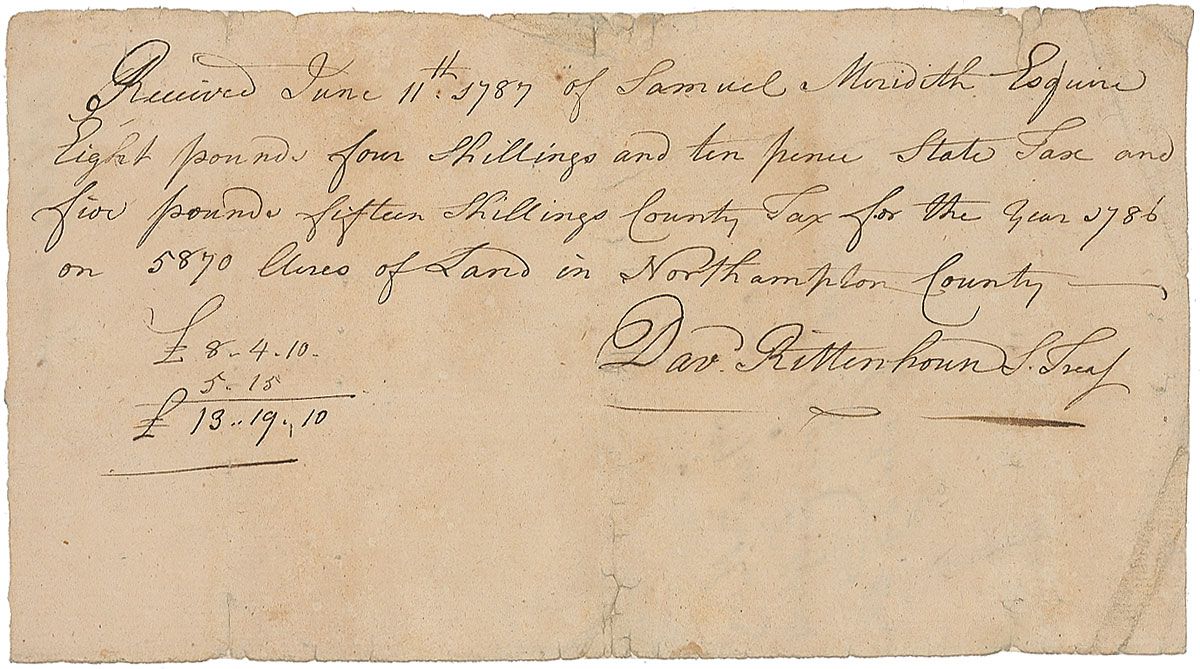 Received June 11th 1787 of Samuel Meridith Esquire
Eight pounds four Shillings and ten pence State Tax and
five pounds fifteen Shillings County Tax for the Year 1786
on 5870 Acres of Land in Northampton County
£ 8. 4. 10.
5. 15
£ 13.. 19.. 10
Davd. Rittenhouse S. Treas